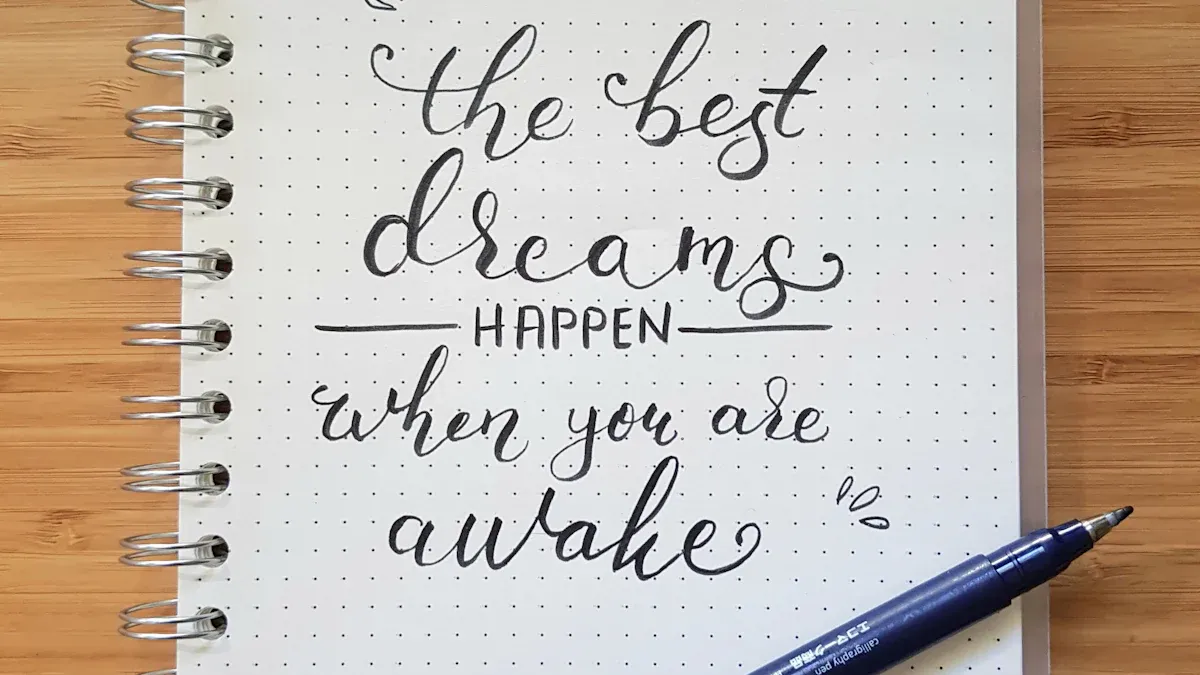 the best
dreams
HAPPEN
when you are
awake
エコマーク商品
calligraphy pen